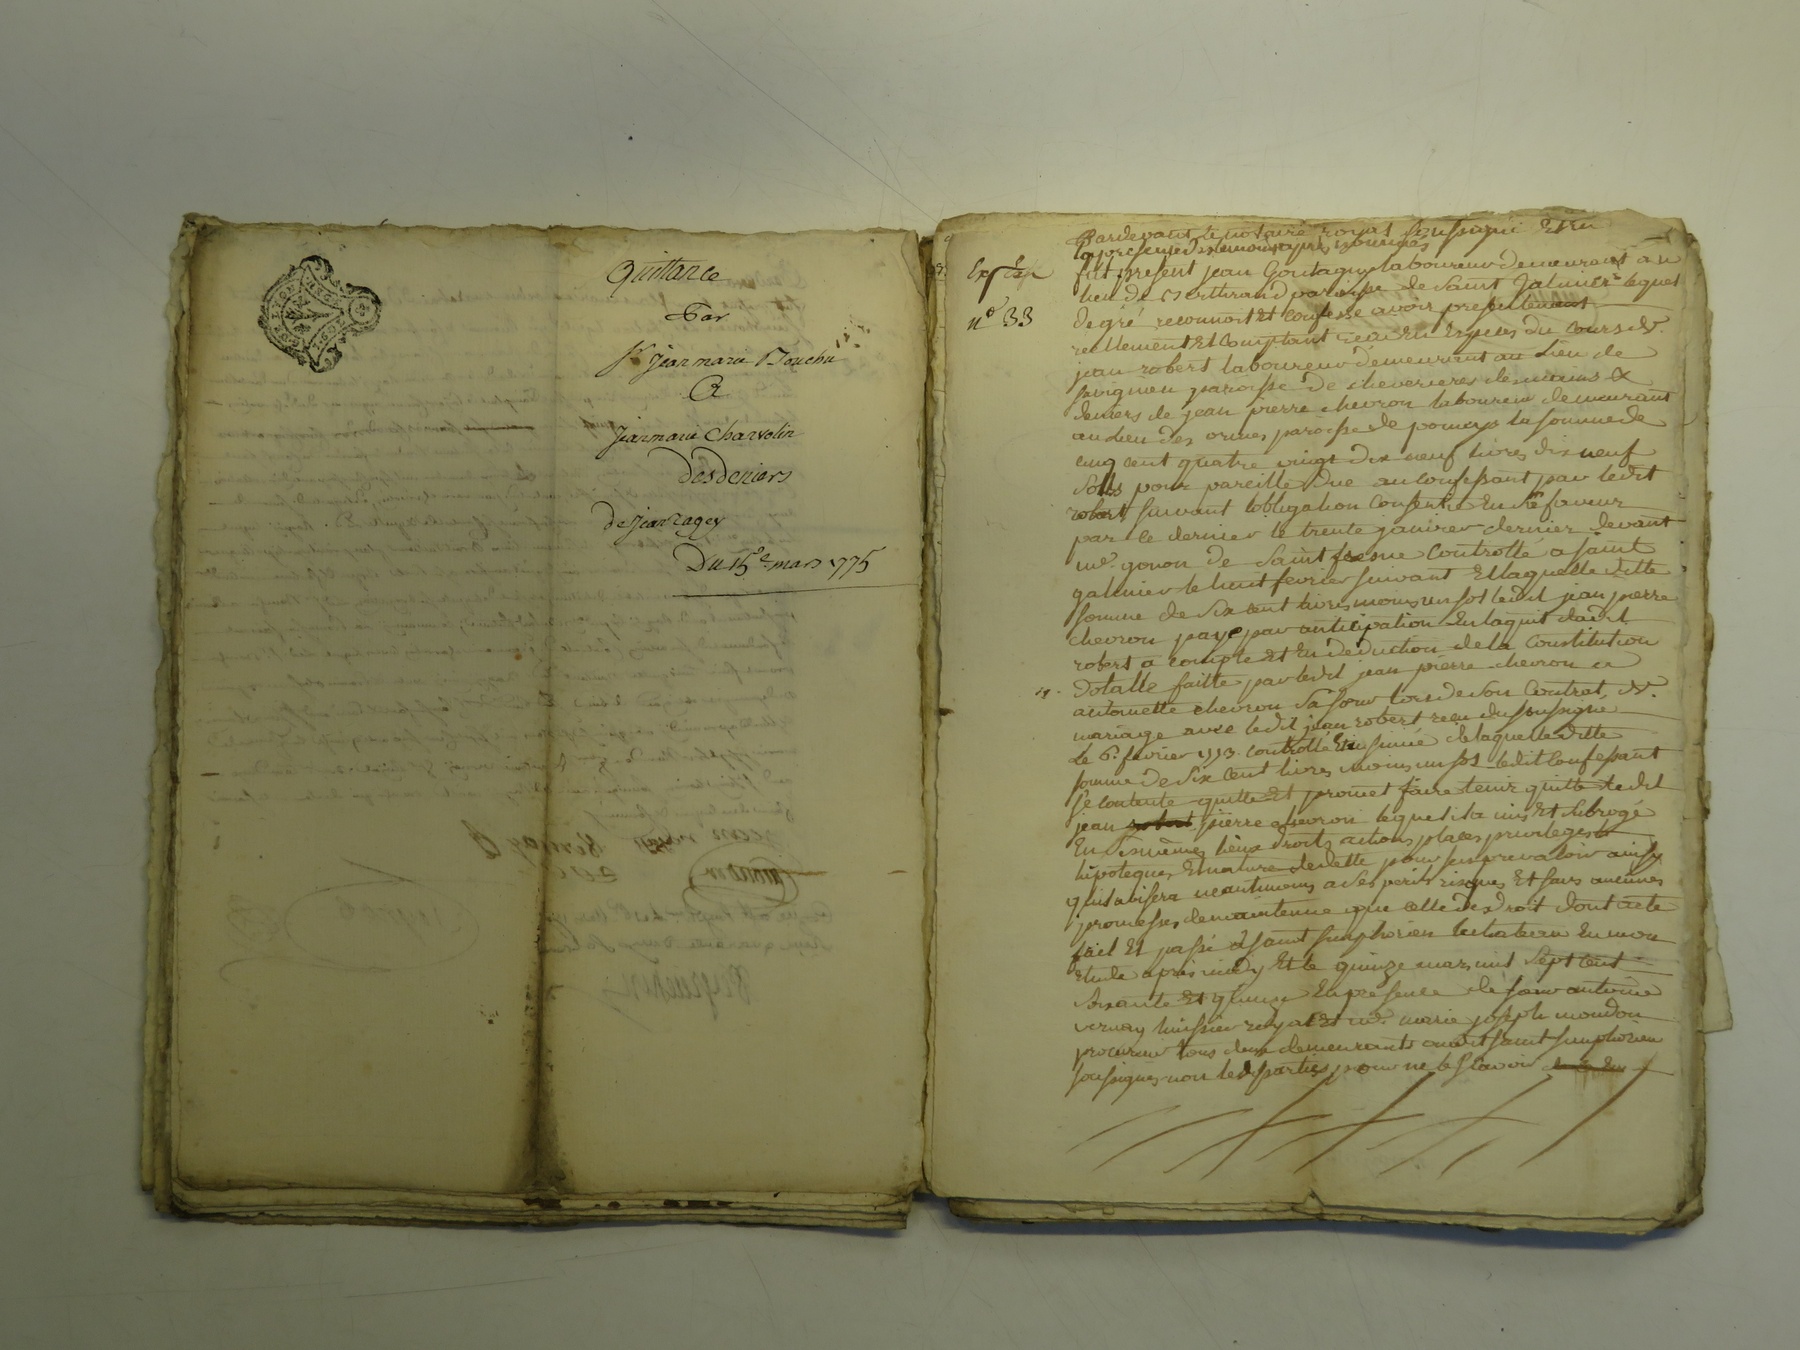 Quittance
Par
Sr Jean marie Bouchu
A
Jean marie Charvolin
Des deniers
de Jean Ragey
Du 15e. mars 1775
Expédié
n° 33
Pardevant le notaire royal soussigné Et en
la presence des temoins apres nommés
fut present jean Goutagny laboureur demeurant au
lieu de Berthrand paroisse de saint Galmier lequel
de gré reconnoit et confesse avoir presentement
reellement Et Comptant receu En Especes du Cours de
jean robert laboureur demeurant au lieu de
savigneu paroisse de cheverieres des mains &
deniers de jean pierre chevron laboureur demeurant
au lieu des ormes paroisse de pomeys la somme de
cinq cent quatre vingt dix neuf livres dix neuf
sols pour pareille due au confessant par ledit
robert suivant lobligation consentie En sa faveur
par ce dernier le trente janvier dernier devant
me. gonon de saint Controllé a saint
galmier le huit fevrier suivant Et laquelle ditte
somme de six cent livres moins un sol ledit jean pierre
chevron paye par anticipation En laquit dudit
robert a compte Et En deduction de la Constitution
dotalle faitte par ledit jean pierre chevron a
antoinette chevron sa sœur lors de son Contrat de
mariage avec ledit jean robert receu du soussigné
Le 6. fevrier 1773. controllé Et insinué de laquelle ditte
somme de six cent livres moins un sol ledit Confessant
se contente quitte Et promet faire tenir quitte ledit
jean pierre chevron lequel il a mis Et subrogé
En ses mêmes lieux droits actions places privileges
hipoteques Et nature de dette pour sen prevaloir ainsy
quil avisera neantmoins a ses perils risques Et sans aucunes
promesses de maintenue que celle de droit dont acte
fait Et passé a saint simphorien le chateau En mon
étude apres midy Et le quinze mars mil sept cent
soixante Et quinze En presence de sieur antoine
vernay huissier royal Et me. marie joseph mondon
procureur tous deux demeurants audit saint simphorien
soussignes non lesd parties pour ne le scavoir